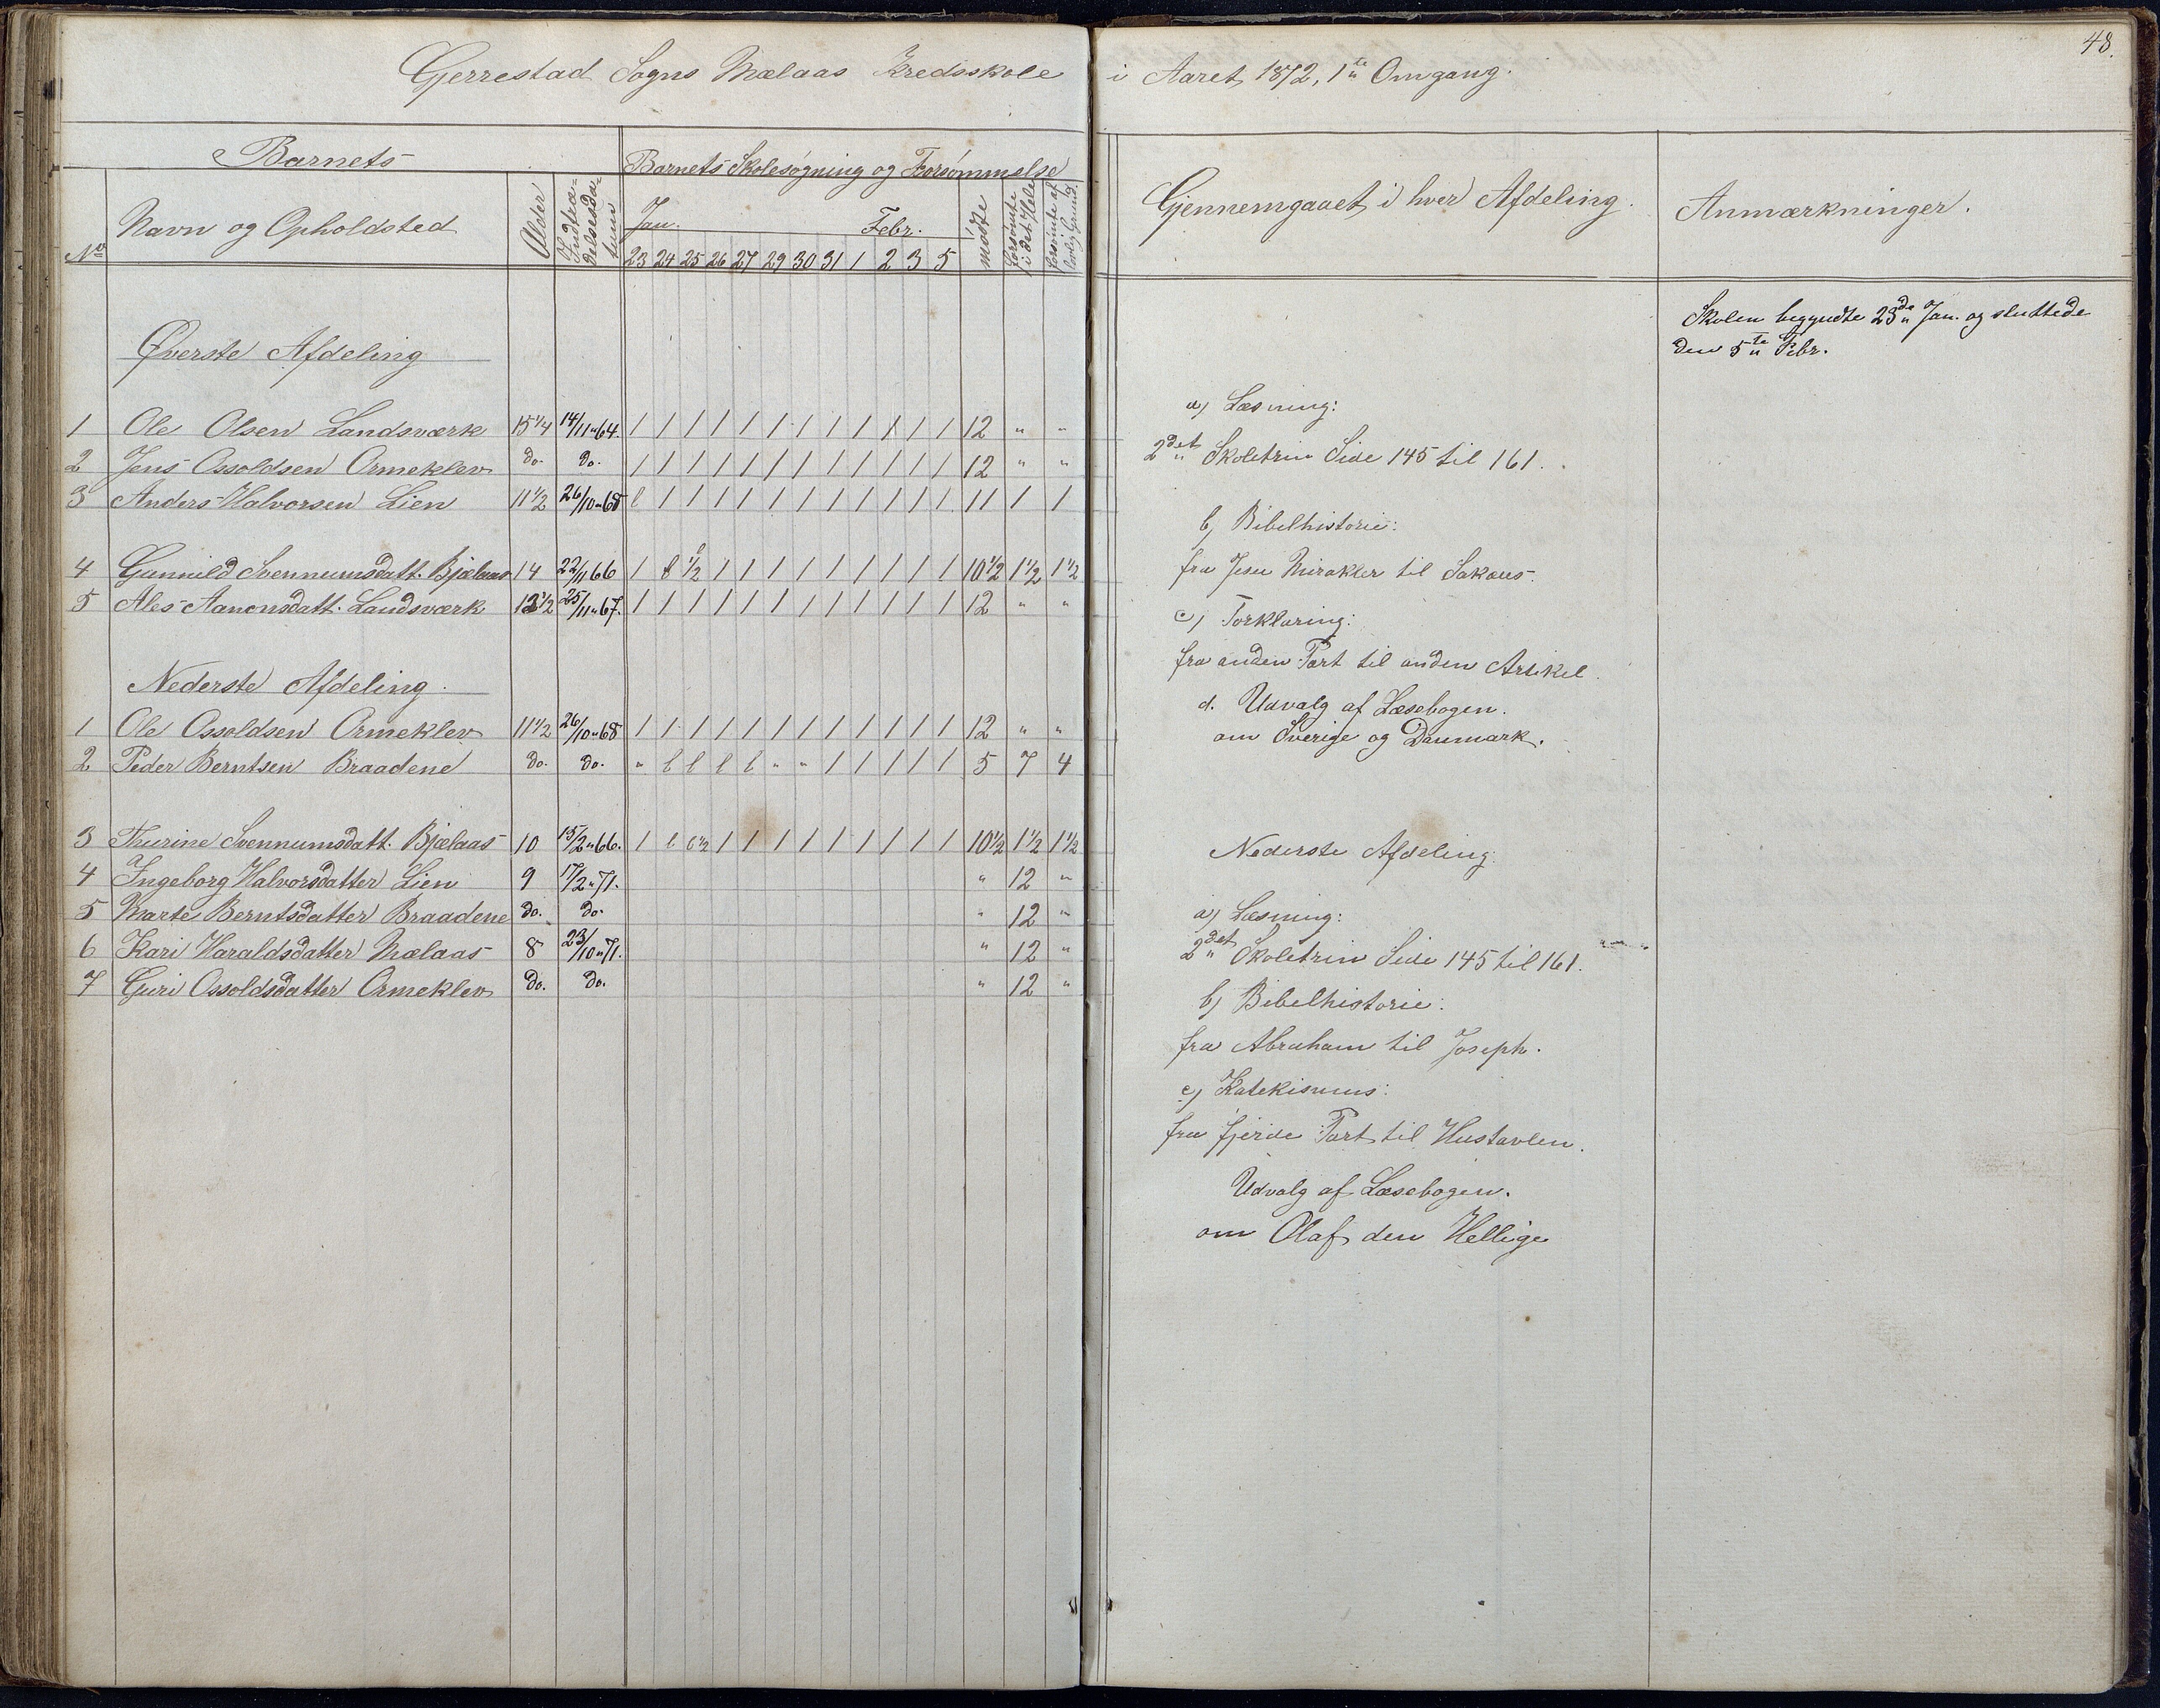 48.
Gjerrestad Sogns Mælaas Kredsskole i Aaret 1872, 1te Omgang.
Barnets
Barnets Skolesøgning og Forsømmelse
No
Navn og Opholdsted
Alder
Indtræ-
delsesda-
tum
Jan. Febr.
23 24 25 26 27 29 30 31 1 2 3 5
mødte
forsømte
i det Hele
forsømte af
lovlig Grund.
Øverste Afdeling
1 Ole Olsen Landsværk 15 1/4 14/11 "64. 1 1 1 1 1 1 1 1 1 1 1 1 12 " "
2 Jens Ossoldsen Ormeklev do. do. 1 1 1 1 1 1 1 1 1 1 1 1 12 " "
3 Anders Halvorsen Lien 11 1/2 26/10 "68 l 1 1 1 1 1 1 1 1 1 1 1 11 1 1
4 Gunnild Svennumsdatt. Bjælaas 14 22/11 66 1 l l 1/2 1 1 1 1 1 1 1 1 1 10 1/2 1 1/2 1 1/2
5 Ales Aanonsdatt. Landsværk 13 1/2 25/11 "67. 1 1 1 1 1 1 1 1 1 1 1 1 12 " "
Nederste Afdeling.
1 Ole Ossoldsen Ormeklev 11 1/2 26/10 "68 1 1 1 1 1 1 1 1 1 1 1 1 12 " "
2 Peder Berntsen Braadene do. do. " l l l l " " 1 1 1 1 1 5 7 4
3 Thurine Svennumsdatt. Bjælaas 10 15/2 "66. 1 l l 1/2 1 1 1 1 1 1 1 1 1 10 1/2 1 1/2 1 1/2
4 Ingeborg Halvorsdatter Lien 9 17/2 "71. " 12 "
5 Marte Berntsdatter Braadene do. do. " 12 "
6 Kari Haraldsdatter Mælaas 8 23/10 "71. " 12 "
7 Guri Ossoldsdatter Ormeklev do. do. " 12 "
Gjennemgaaet i hver Afdeling.
a) Læsning:
2det Skoletrin Side 145 til 161.
b) Bibelhistorie:
fra Jesu Mirakler til Sakæus.
c) Forklaring:
fra anden Part til anden Artikel.
d. Udvalg af Læsebogen.
om Sverige og Danmark.
Nederste Afdeling.
a) Læsning:
2det Skoletrin Side 145 til 161.
b) Bibelhistorie:
fra Abraham til Joseph.
c) Katekismus:
fra fjerde Part til Hustavlen.
Udvalg af Læsebogen.
om Olaf den Hellige
Anmærkninger.
Skolen begyndte 23de Jan. og sluttede
den 5te Febr.